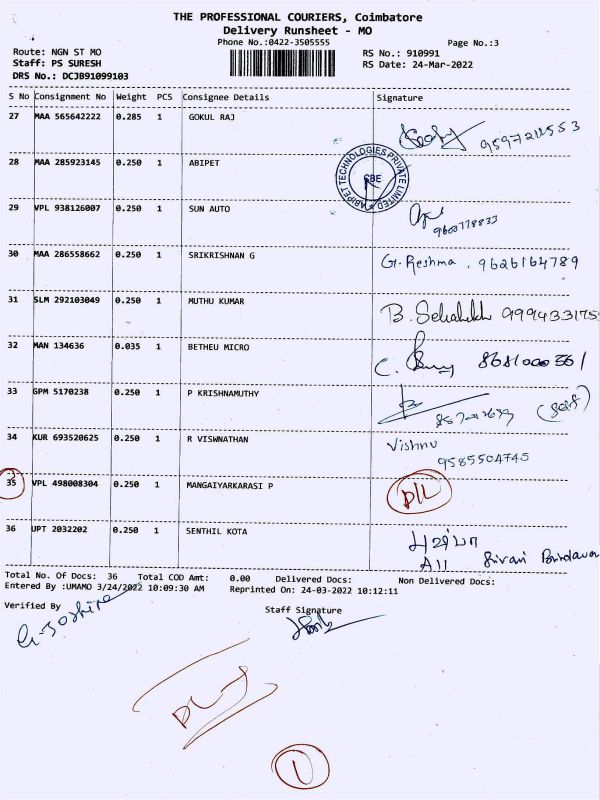 THE PROFESSIONAL COURIERS, Coimbatore
Delivery Runsheet - MO
Phone No.:0422-3505555
Page No.:3
Route: NGN ST MO
RS No.: 910991
Staff: PS SURESH
RS Date: 24-Mar-2022
DRS No.: DCJB91099103
S No Consignment No Weight PCS Consignee Details Signature
27 MAA 565642222 0.285 1 GOKUL RAJ
28 MAA 285923145 0.250 1 ABIPET
ABIPET TECHNOLOGIES PRIVATE LIMITED
CBE
29 VPL 938126007 0.250 1 SUN AUTO
30 MAA 286558662 0.250 1 SRIKRISHNAN G G. Reshma. 9626164789
31 SLM 292103049 0.250 1 MUTHU KUMAR B. 999433175
32 MAN 134636 0.035 1 BETHEU MICRO C.
33 GPM 5170238 0.250 1 P KRISHNAMUTHY (Self)
34 KUR 693520625 0.250 1 R VISWNATHAN Vishnu
9585504745
35 VPL 498008304 0.250 1 MANGAIYARKARASI P D/L
36 UPT 2032202 0.250 1 SENTHIL KOTA
Total No. Of Docs: 36 Total COD Amt: 0.00 Delivered Docs: Non Delivered Docs:
Entered By :UMAMO 3/24/2022 10:09:30 AM Reprinted On: 24-03-2022 10:12:11
Verified By
Staff Signature
1